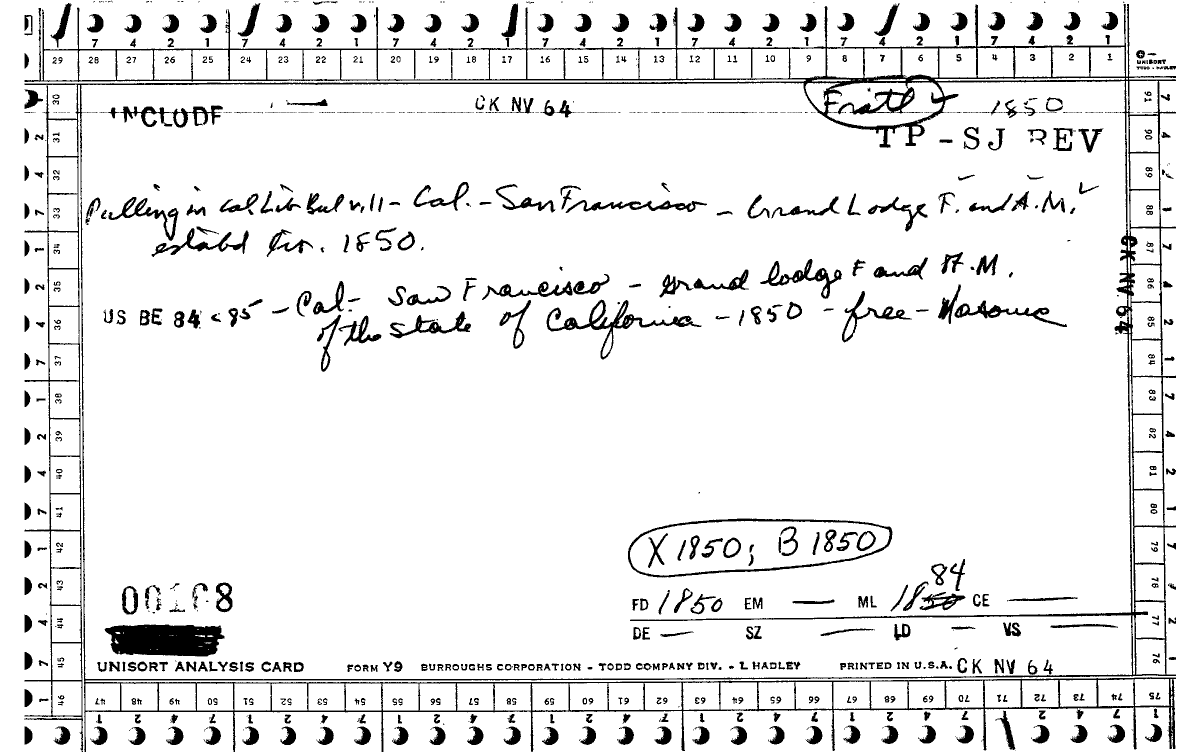 7 4 2 1 7 4 2 1 7 4 2 1 7 4 2 1 7 4 2 1 7 4 2 1 7 4 2 1
29 28 27 26 25 24 23 22 21 20 19 18 17 16 15 14 13 12 11 10 9 8 7 6 5 4 3 2 1
UNISORT
TODD - HADLEY
INCLUDE — CK NV 64 Fratl ✓ 1850
TP - SJ REV
Pulling in Cal. Lib Bul v. 11 - Cal. - San Francisco - Grand Lodge F. and A.M. ✓
establd 1850.
US BE 84 < 85 - Cal - San Francisco - Grand lodge F and A.M.
of the State of California - 1850 - free - Masonic
CK NV 64
X 1850; B 1850
84
00168
FD 1850 EM — ML 1850 CE —
DE — SZ — LD — VS —
UNISORT ANALYSIS CARD FORM Y9 BURROUGHS CORPORATION - TODD COMPANY DIV. - L HADLEY PRINTED IN U.S.A. CK NV 64
30 31 32 33 34 35 36 37 38 39 40 41 42 43 44 45 46
91 90 89 88 87 86 85 84 83 82 81 80 79 78 77 76
47 48 49 50 51 52 53 54 55 56 57 58 59 60 61 62 63 64 65 66 67 68 69 70 71 72 73 74 75